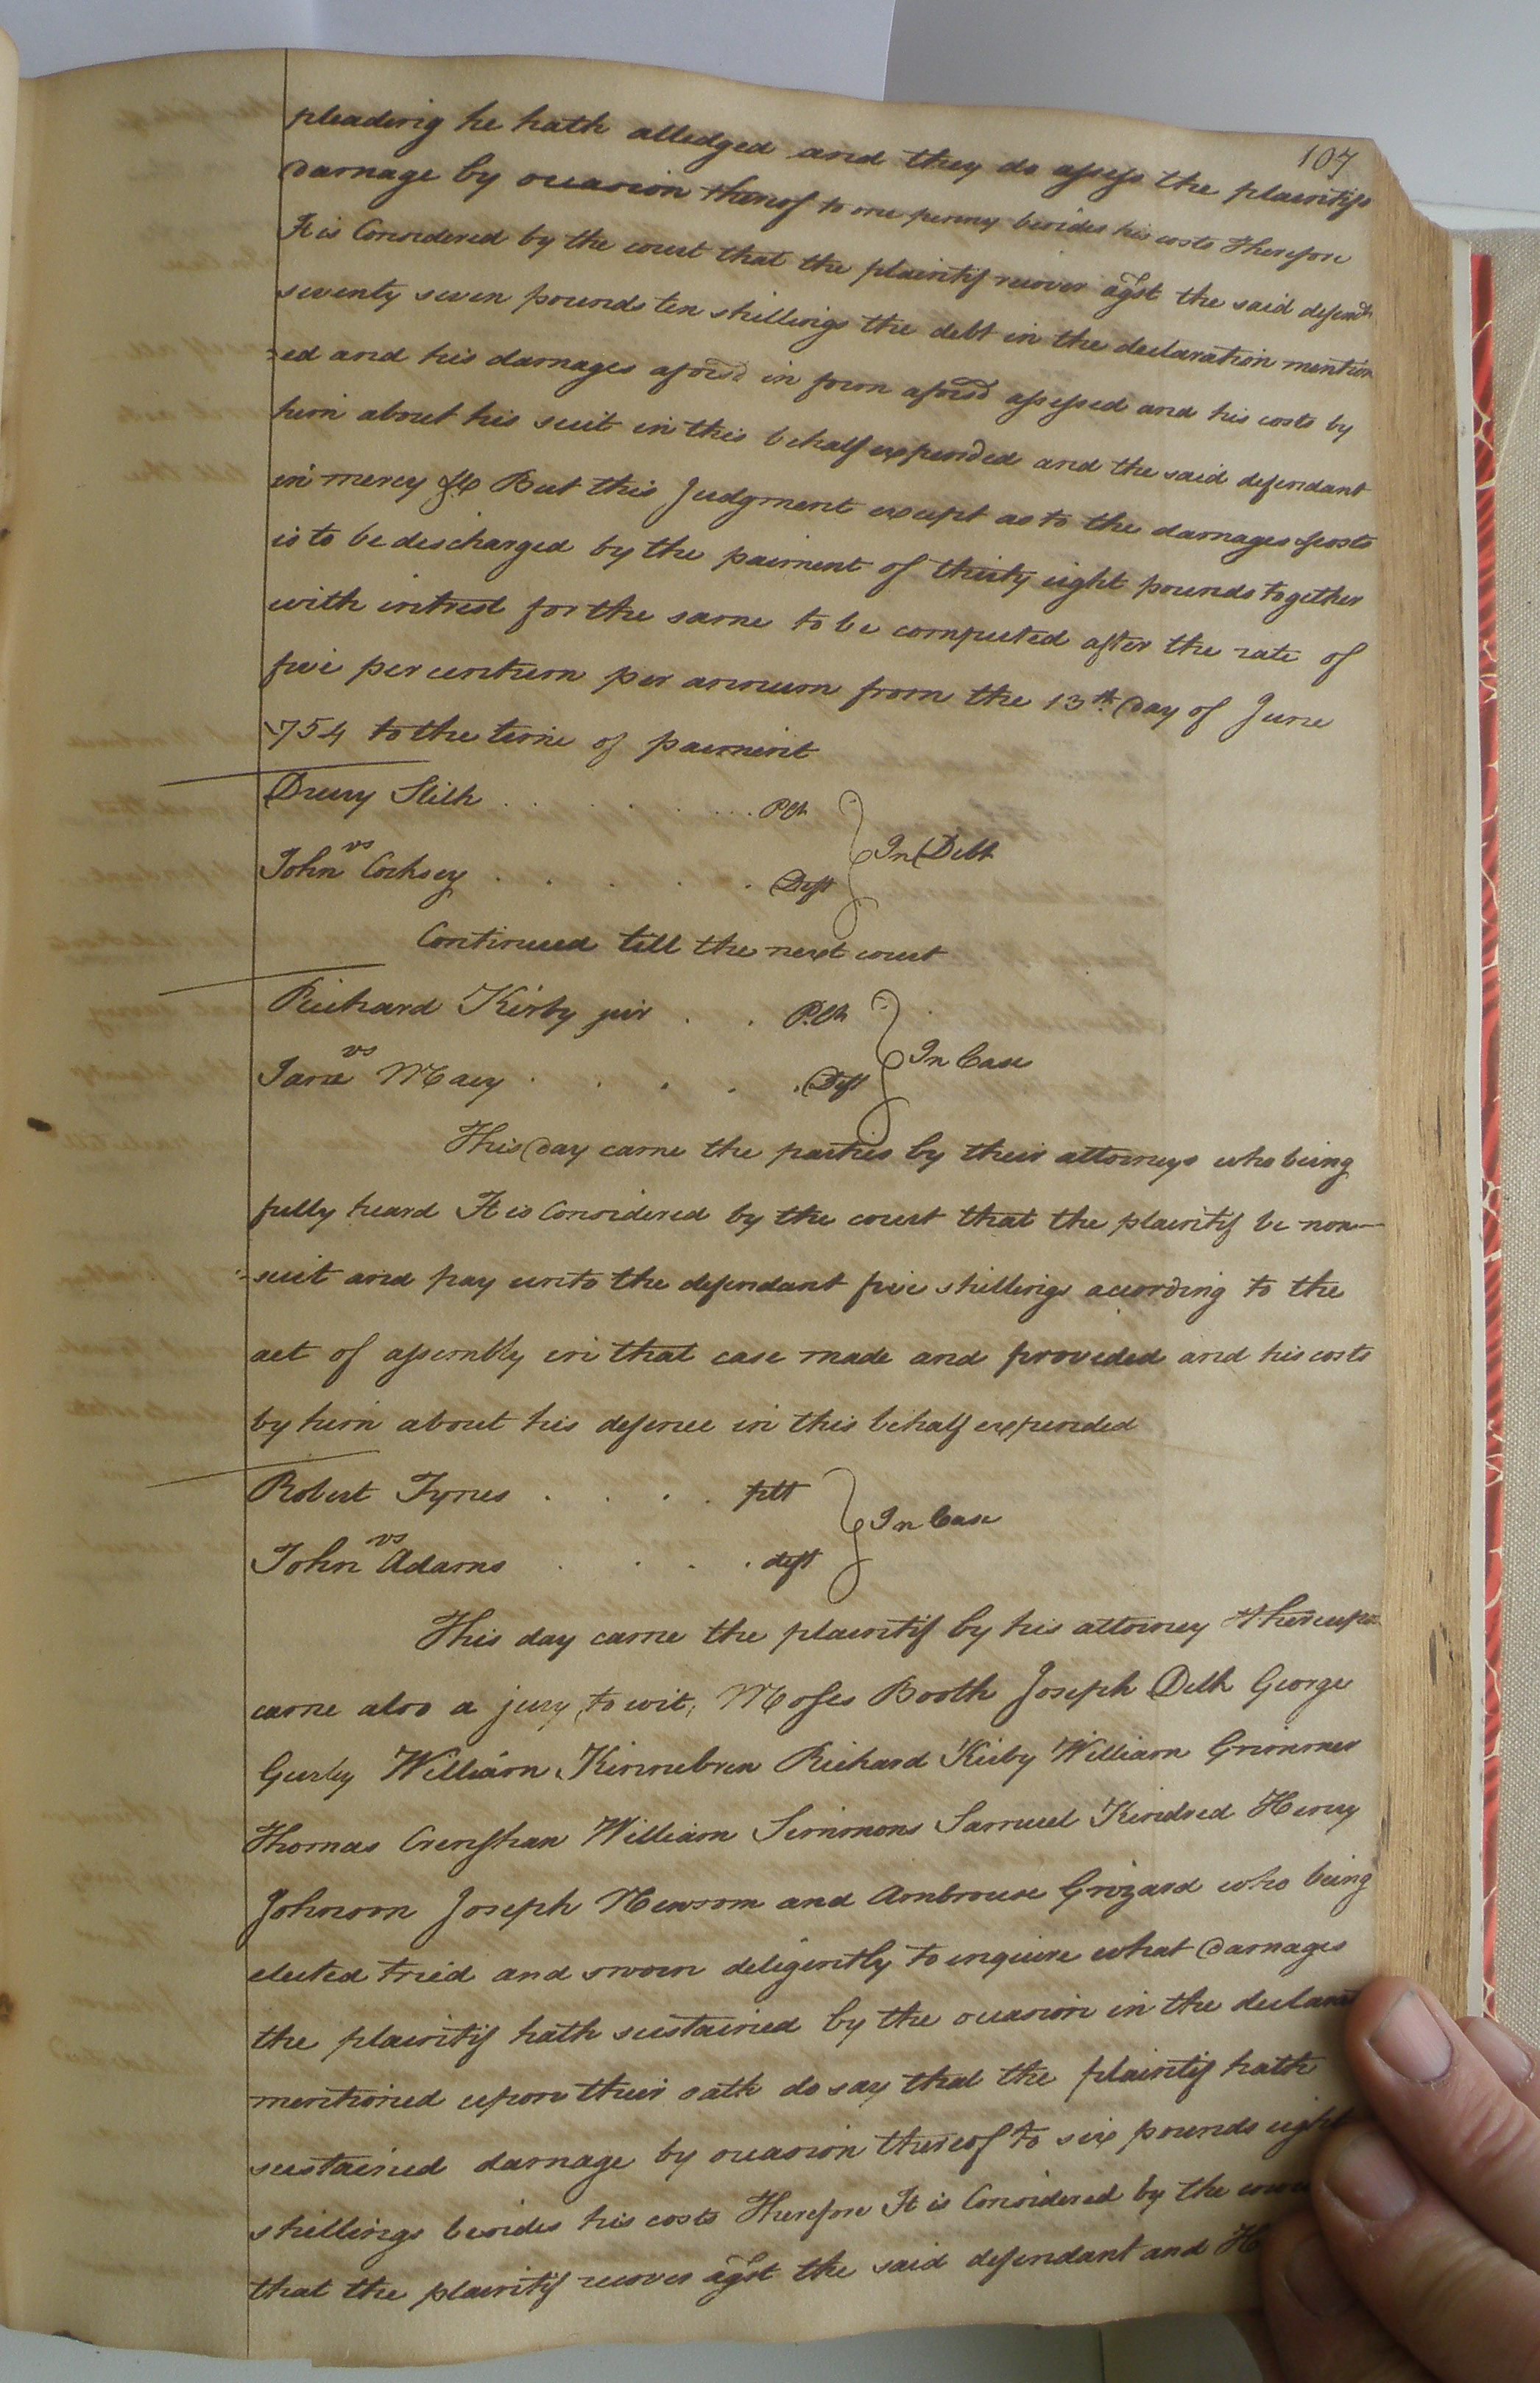 107
pleading he hath alledged and they do assess the plaintifs
damage by occasion thereof to one penny besides his costs Therefore
It is Considered by the court that the plaintif recover agst the said defendt
seventy seven pounds ten shillings the debt in the declaration mention
=ed and his damages aforsd in form aforsd assessed and his costs by
him about his suit in this behalf expended and the said defendant
in mercy &c But this Judgment except as to the damages & costs
is to be descharged by the paiment of thirty eight pounds together
with intrest for the same to be computed after the rate of
five per centum per annum from the 13th Day of June
1754 to the time of paiment
Drury Stith . . . . . Plt
vs
In Debt
John Cocksey . . . . . Deft
Continued till the next court
Richard Kirby jnr . . Plt
vs
In Case
Jane Macy . . . . . Deft
This Day came the parties by their attorneys who being
fully heard It is Considered by the court that the plaintif be non=
=suit and pay unto the defendant five shillings according to the
act of assembly in that case made and provided and his costs
by him about his defence in this behalf expended
Robert Tynes . . . . plt
vs
In Case
John Adams . . . . deft
This day came the plaintif by his attorney & thereupon
came also a jury, to wit, Moses Booth Joseph Delk George
Gurley William Kinnebren Richard Kirby William Grimmer
Thomas Crenshan William Simmons Samuel Kindred Henry
Johnson Joseph Newsom and Ambrouse Grizard who being
elected tried and sworn deligently to inquire what Damages
the plaintif hath sustained by the occasion in the declarat
mentioned upon their oath do say that the plaintif hath
sustained damage by occasion thereof to six pounds eight
shillings besides his costs Therefore It is Considered by the court
that the plaintif recover agst the said defendant and